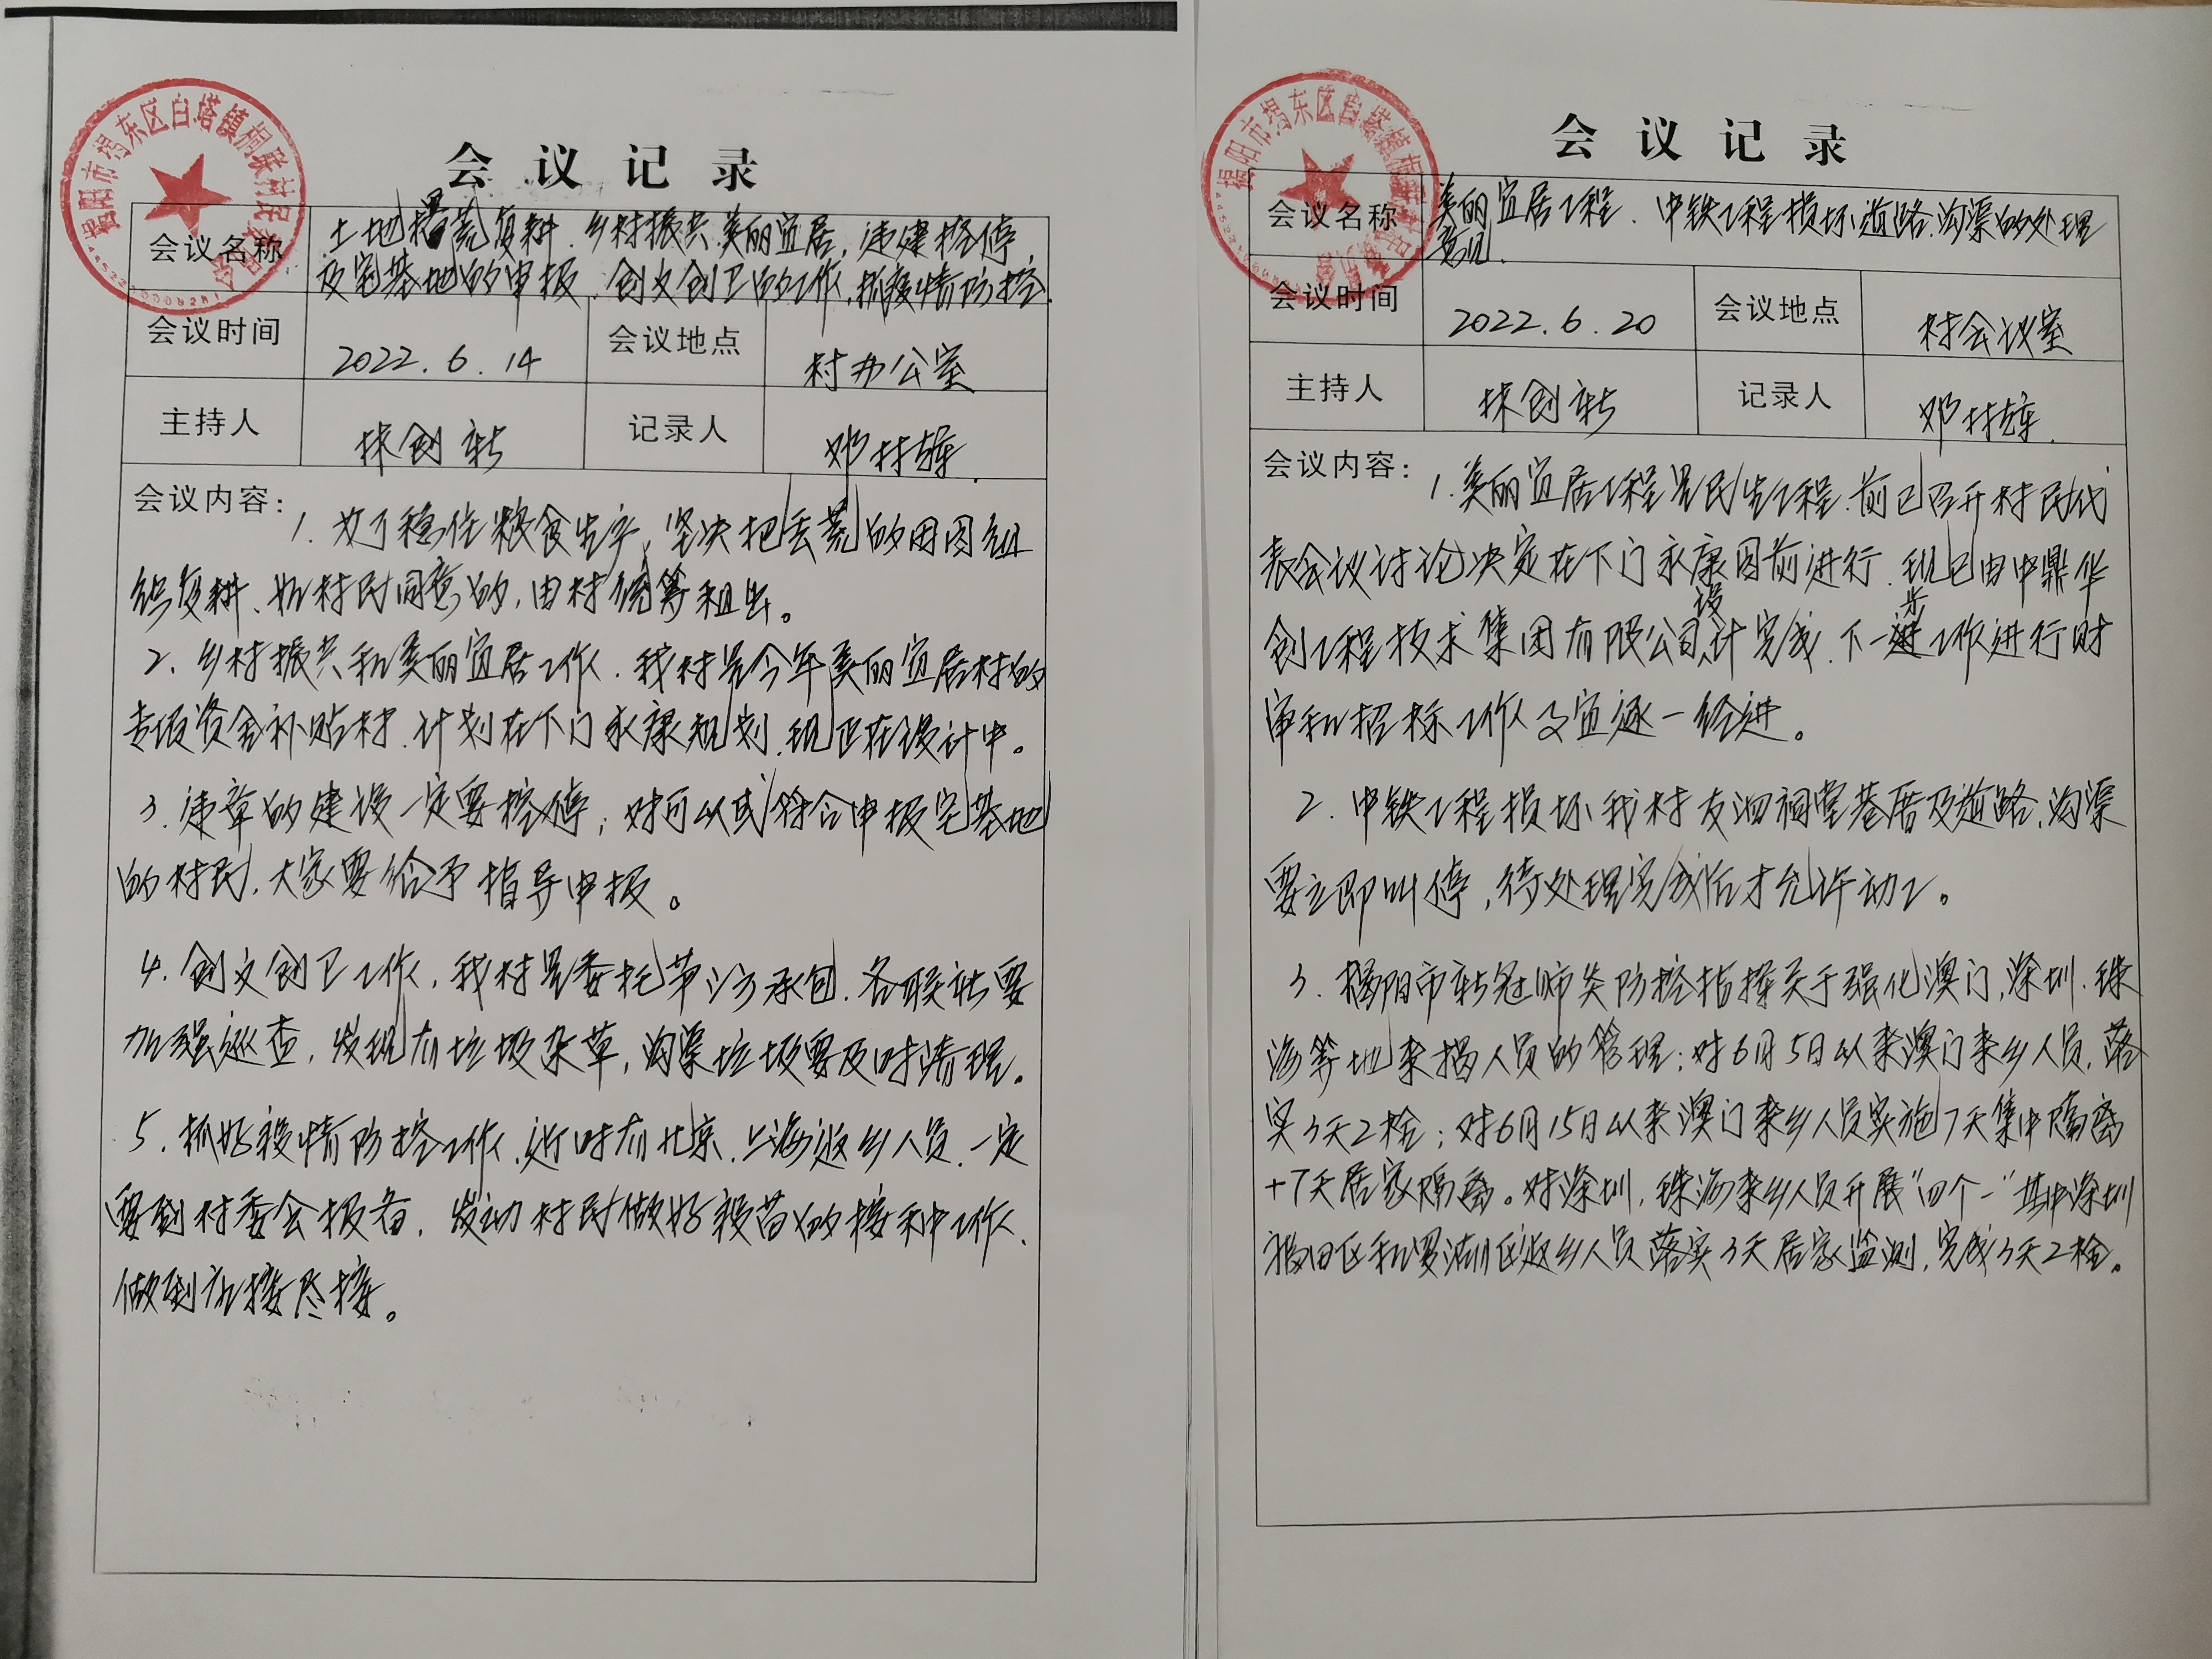 揭阳市揭东区白塔镇桐联村民委员会
会议记录
会议名称
土地撂荒复耕、乡村振兴美丽宜居，违建控停
及宅基地的申报、创文创卫的工作，抓疫情防控.
会议时间
2022.6.14
会议地点
村办公室
主持人
林创新
记录人
邓村雄.
会议内容：
1. 为了稳住粮食生产，坚决把丢荒的田园组
织复耕、如村民同意的，由村统筹租出。
2、乡村振兴和美丽宜居工作. 我村是今年美丽宜居村的
专项资金补贴村. 计划在下门永康规划. 现正在设计中。
3. 违章的建设一定要控停；对可以或符合申报宅基地
的村民，大家要给予指导申报。
4. 创文创卫工作，我村是委托第三方承包. 各联社要
加强巡查，发现有垃圾杂草，沟渠垃圾要及时清理。
5. 抓好疫情防控工作，近时有北京. 上海返乡人员. 一定
要到村委会报备. 发动村民做好疫苗的接种工作.
做到应接尽接。
会议记录
会议名称
美丽宜居工程. 中铁工程损坏道路.沟渠的处理
意见.
会议时间
2022.6.20
会议地点
村会议室
主持人
林创新
记录人
邓村雄.
会议内容：
1. 美丽宜居工程是民生工程. 前已召开村民代
表会议讨论决定在下门永康园前进行. 现已由中鼎华
创工程技术集团有限公司设计完成. 下一步工作进行财
审和招标工作及宜逐一经进。
2. 中铁工程损坏我村友泗祠堂巷厝及道路.沟渠
要立即叫停，待处理完成后才允许动工。
3. 揭阳市新冠肺炎防控指挥关于强化澳门，深圳. 珠
海等地来揭人员的管理；对6月5日以来澳门来乡人员，落
实3天2检；对6月15日以来澳门来乡人员实施7天集中隔离
+7天居家隔离。对深圳，珠海来乡人员开展“四个一”其中深圳
福田区和罗湖区返乡人员落实3天居家监测，完成3天2检。